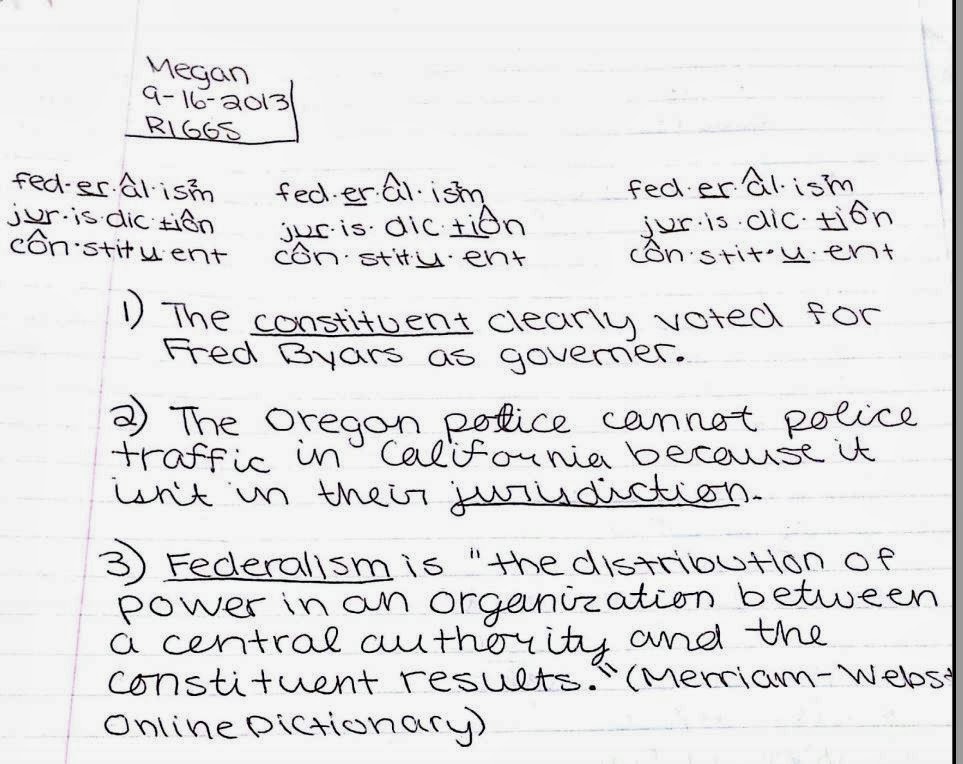 Megan
9-16-2013
RIGGS
fed·er·âl·ism fed·er·âl·ism fed·er·âl·ism
jur·is·dic·tiôn jur·is·dic·tiôn jur·is·dic·tiôn
côn·stit·u·ent côn·stit·u·ent côn·stit·u·ent
1) The constituent clearly voted for
Fred Byars as governer.
2) The Oregon police cannot police
traffic in California because it
isn't in their jurisdiction.
3) Federalism is "the distribution of
power in an organization between
a central authority and the
constituent results." (Merriam-Webst
Online Dictionary)